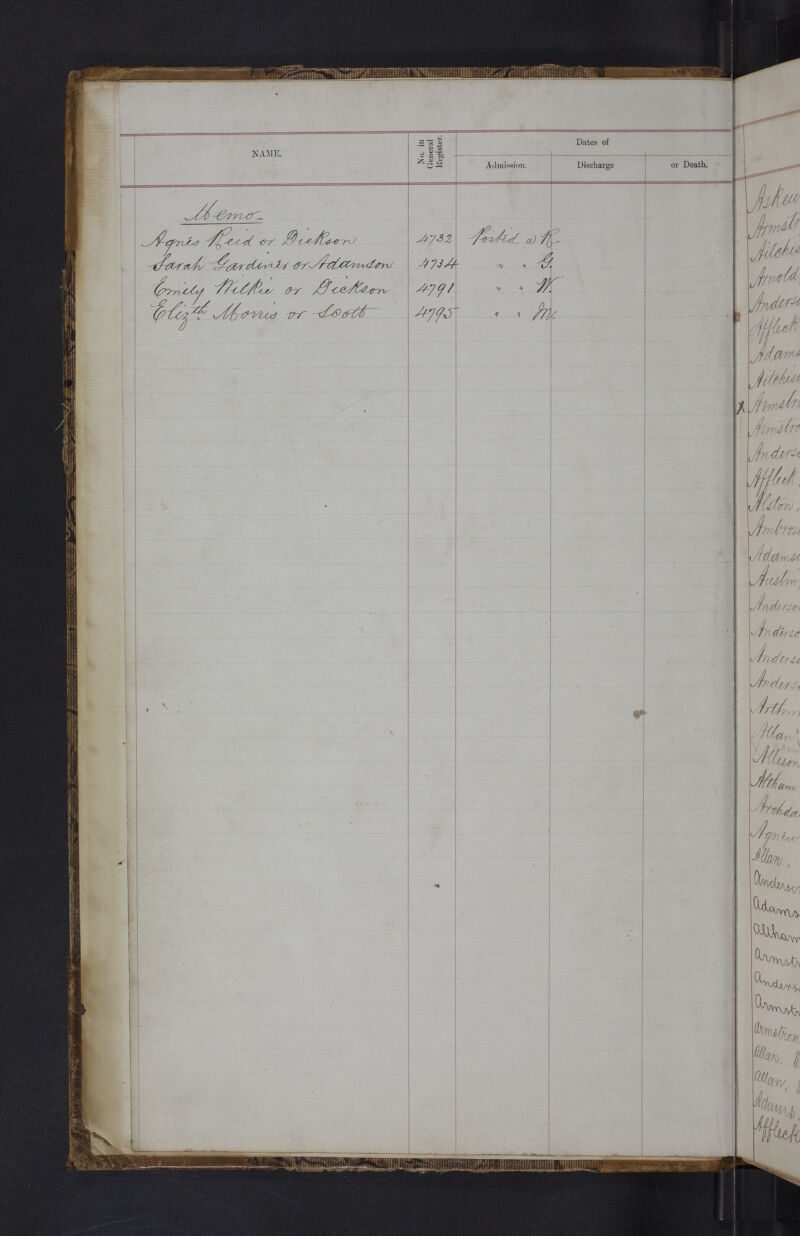 NAME.
No. in General Register.
Dates of
Admission.
Discharge
or Death.
Memo
Agnes Reid or Dickson 4732 Posted @ R.
Sarah Gardiner or Adamson 4734 " " G.
Emily Wilkie or Dickson 4791 " " W.
Elizth Morris or Scott 4795 " " M.
Askew
Armstr
Aitchis
Arnold
Anders
Affleck
Adams
Aitchis
x Armstr
Armstro
Anders
Affleck,
Alston,
Ambros
Adams
Austin
Anderso
Anderso
Anders
Anders
Arthur
Allan
Allison
Altham
Archda
Agnew
Allan,
Anderson
Adams
Altham
Armstr
Anders
Armstr
Armstron
Allan,
Allan,
Adams
Affleck